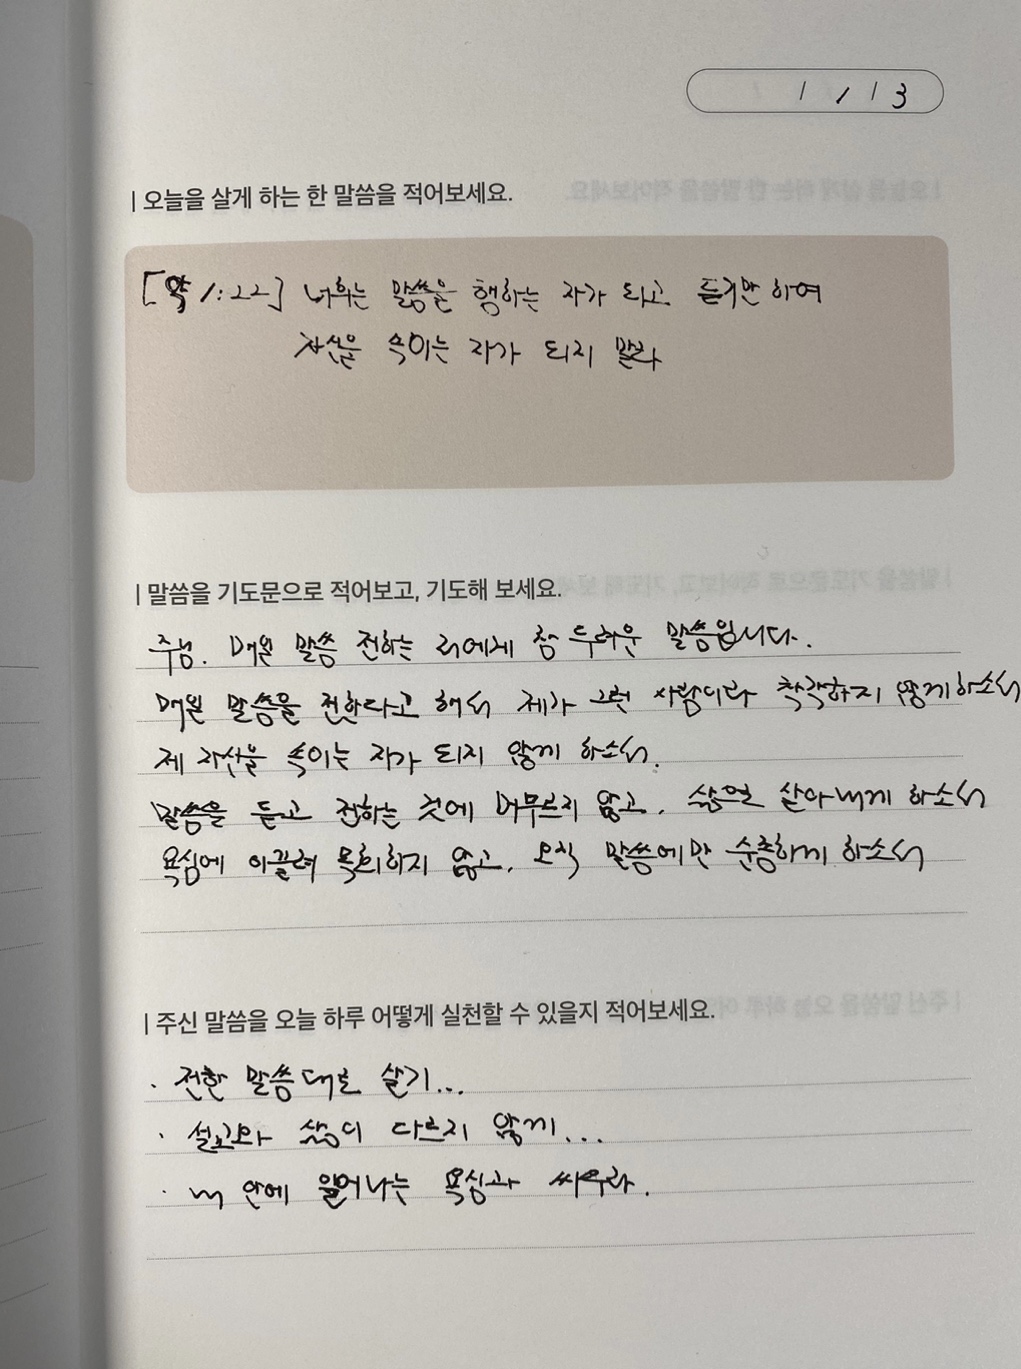 1 / 13
| 오늘을 살게 하는 한 말씀을 적어보세요.
[약 1:22] 너희는 말씀을 행하는 자가 되고 듣기만 하여
자신을 속이는 자가 되지 말라
| 말씀을 기도문으로 적어보고, 기도해 보세요.
주님. 매일 말씀 전하는 저에게 참 두려운 말씀입니다.
매일 말씀을 전한다고 해서 제가 그런 사람이라 착각하지 않게 하소서
제 자신을 속이는 자가 되지 않게 하소서.
말씀을 듣고 전하는 것에 머무르지 않고, 삶으로 살아내게 하소서
욕심에 이끌려 목회하지 않고, 오직 말씀에만 순종하게 하소서
| 주신 말씀을 오늘 하루 어떻게 실천할 수 있을지 적어보세요.
· 전한 말씀대로 살기...
· 설교와 삶이 다르지 않게...
· 내 안에 일어나는 욕심과 싸우라.